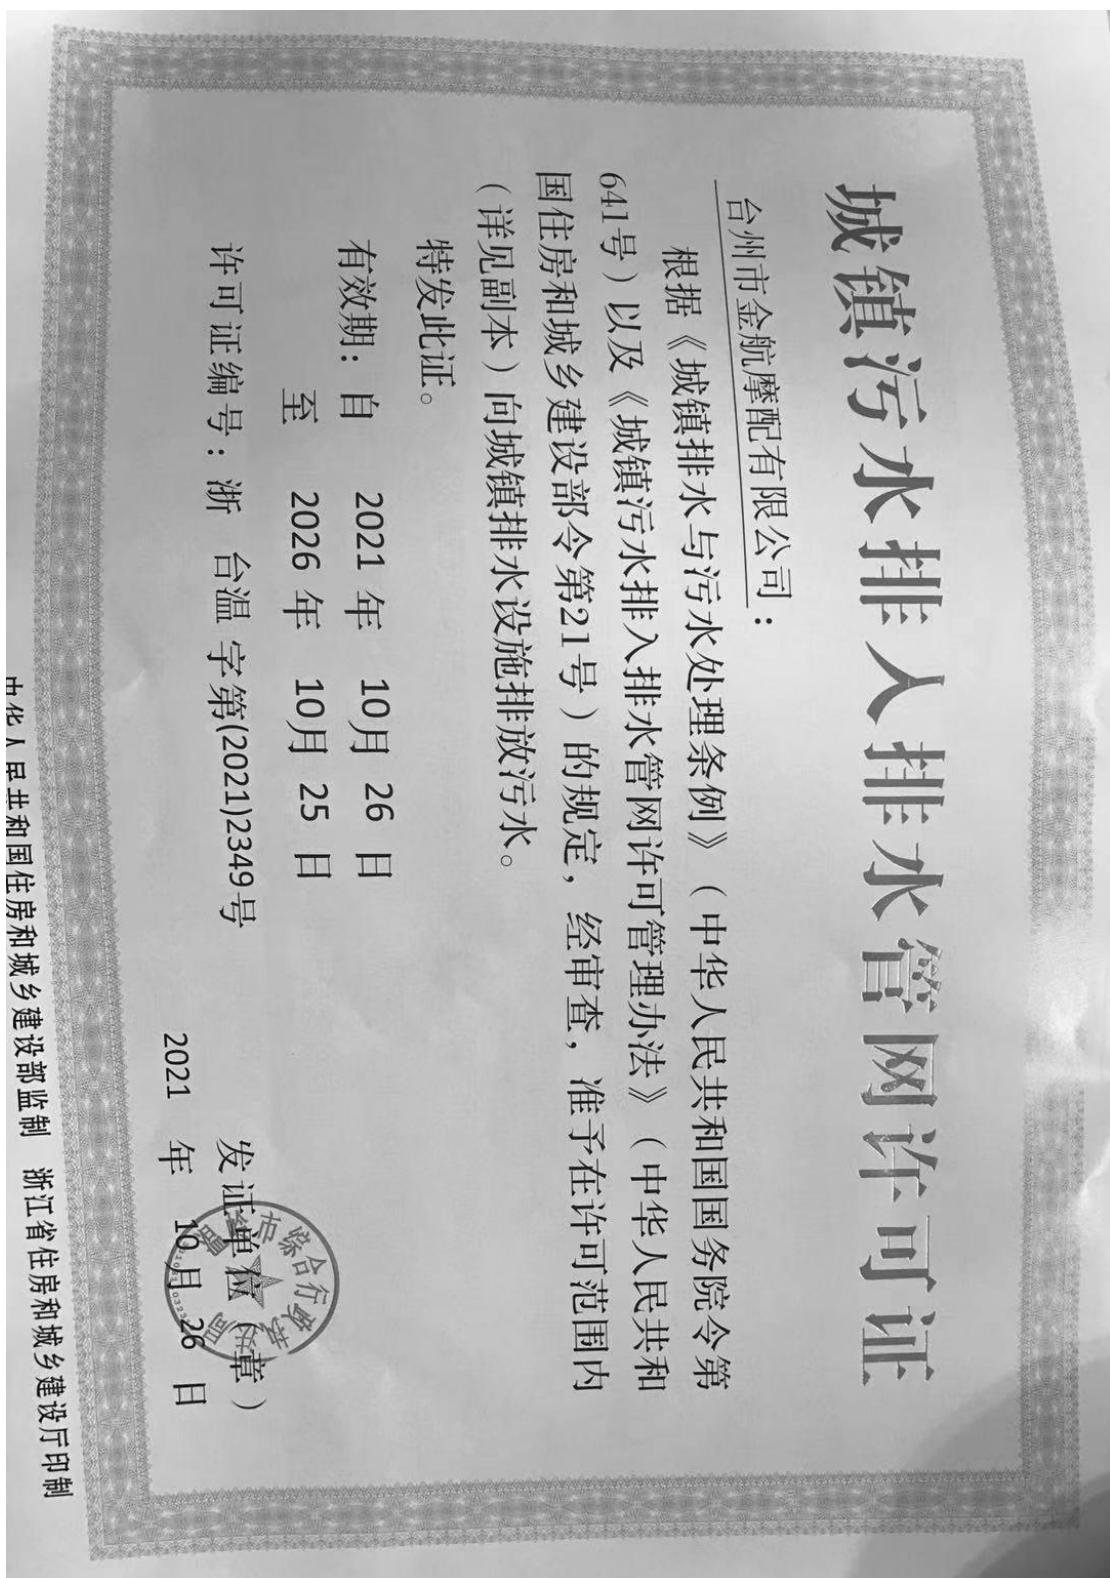 城镇污水排入排水管网许可证
台州市金航摩配有限公司：
根据《城镇排水与污水处理条例》（中华人民共和国国务院令第
641号）以及《城镇污水排入排水管网许可管理办法》（中华人民共和
国住房和城乡建设部令第21号）的规定，经审查，准予在许可范围内
（详见副本）向城镇排水设施排放污水。
特发此证。
有效期：自 2021 年 10月 26 日
至 2026 年 10月 25 日
许可证编号：浙 台温 字第(2021)2349号
发证单位（章）
市综合行政执
2021 年 10月 26 日
中华人民共和国住房和城乡建设部监制 浙江省住房和城乡建设厅印制